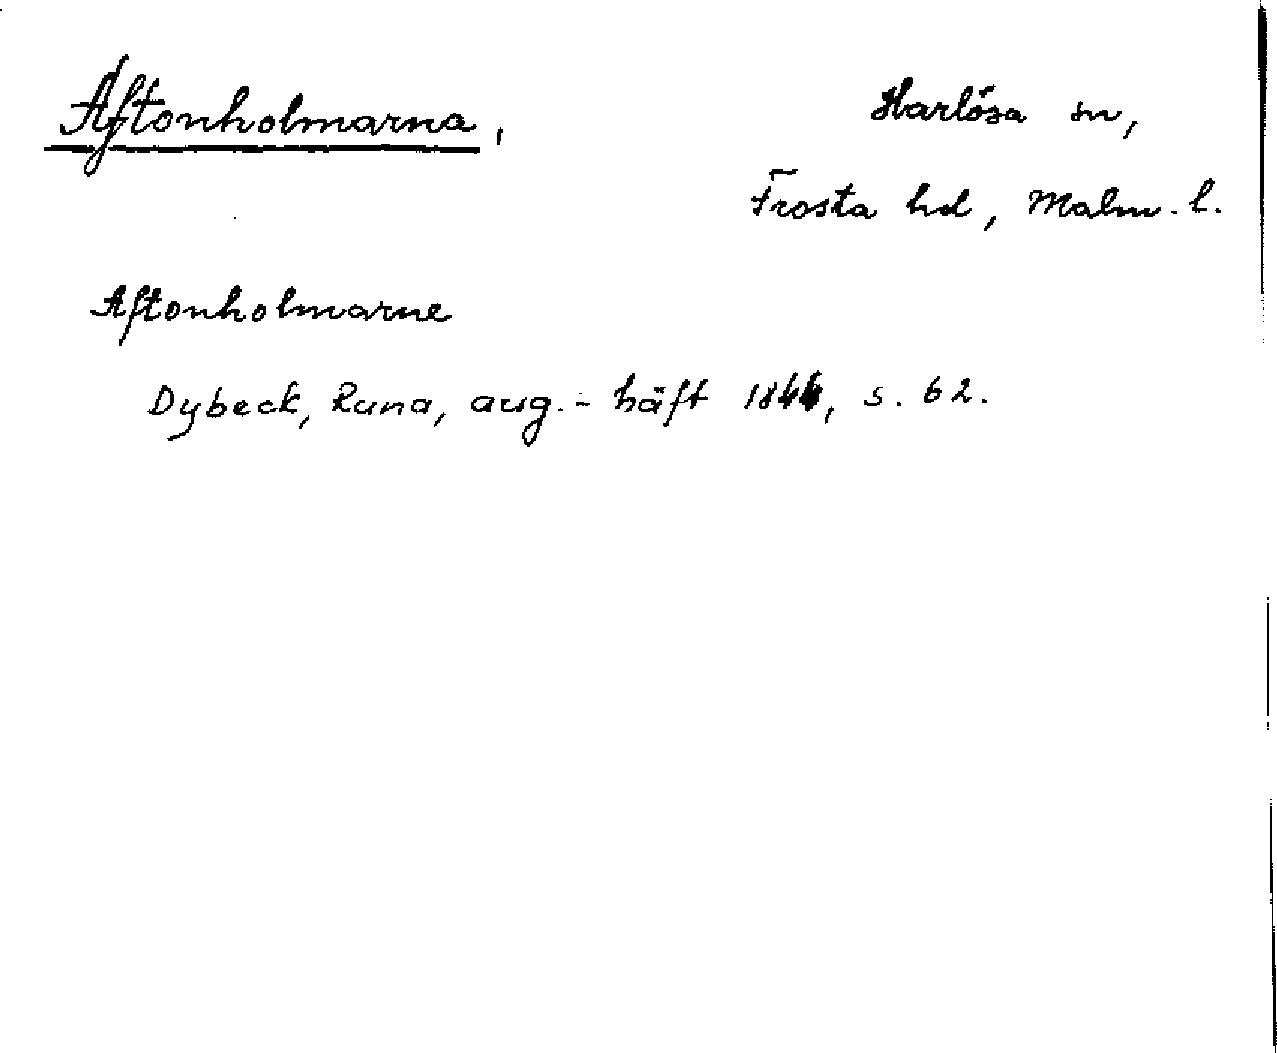 Aftonholmarna,
Harlösa sn,
Frosta hd, Malm. l.
Aftonholmarne
Dybeck, Runa, aug.-häft 1844, s. 62.